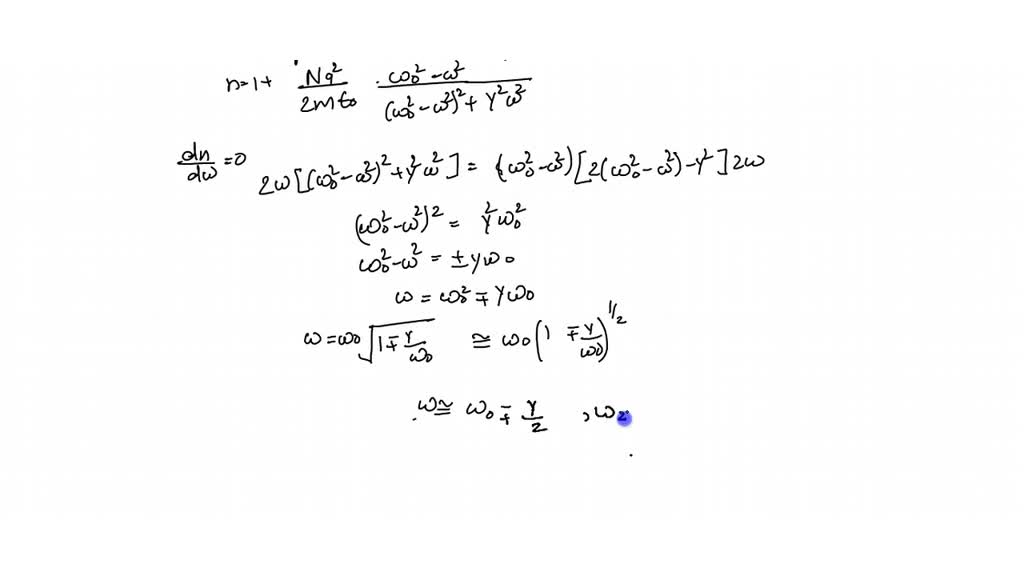 n=1+ Nq²/2mϵ₀ · ω₀²-ω²/(ω₀²-ω²)²+γ²ω²
dn/dω=0 2ω[(ω₀²-ω²)²+γ²ω²] = (ω₀²-ω²)[2(ω₀²-ω²)-γ²]2ω
(ω₀²-ω²)² = γ²ω₀²
ω₀²-ω² = ±γω₀
ω = ω₀² ∓ γω₀
ω=ω₀√(1∓γ/ω₀) ≅ ω₀(1 ∓ γ/ω₀)^1/2
ω ≅ ω₀ ∓ γ/2 , ω₂